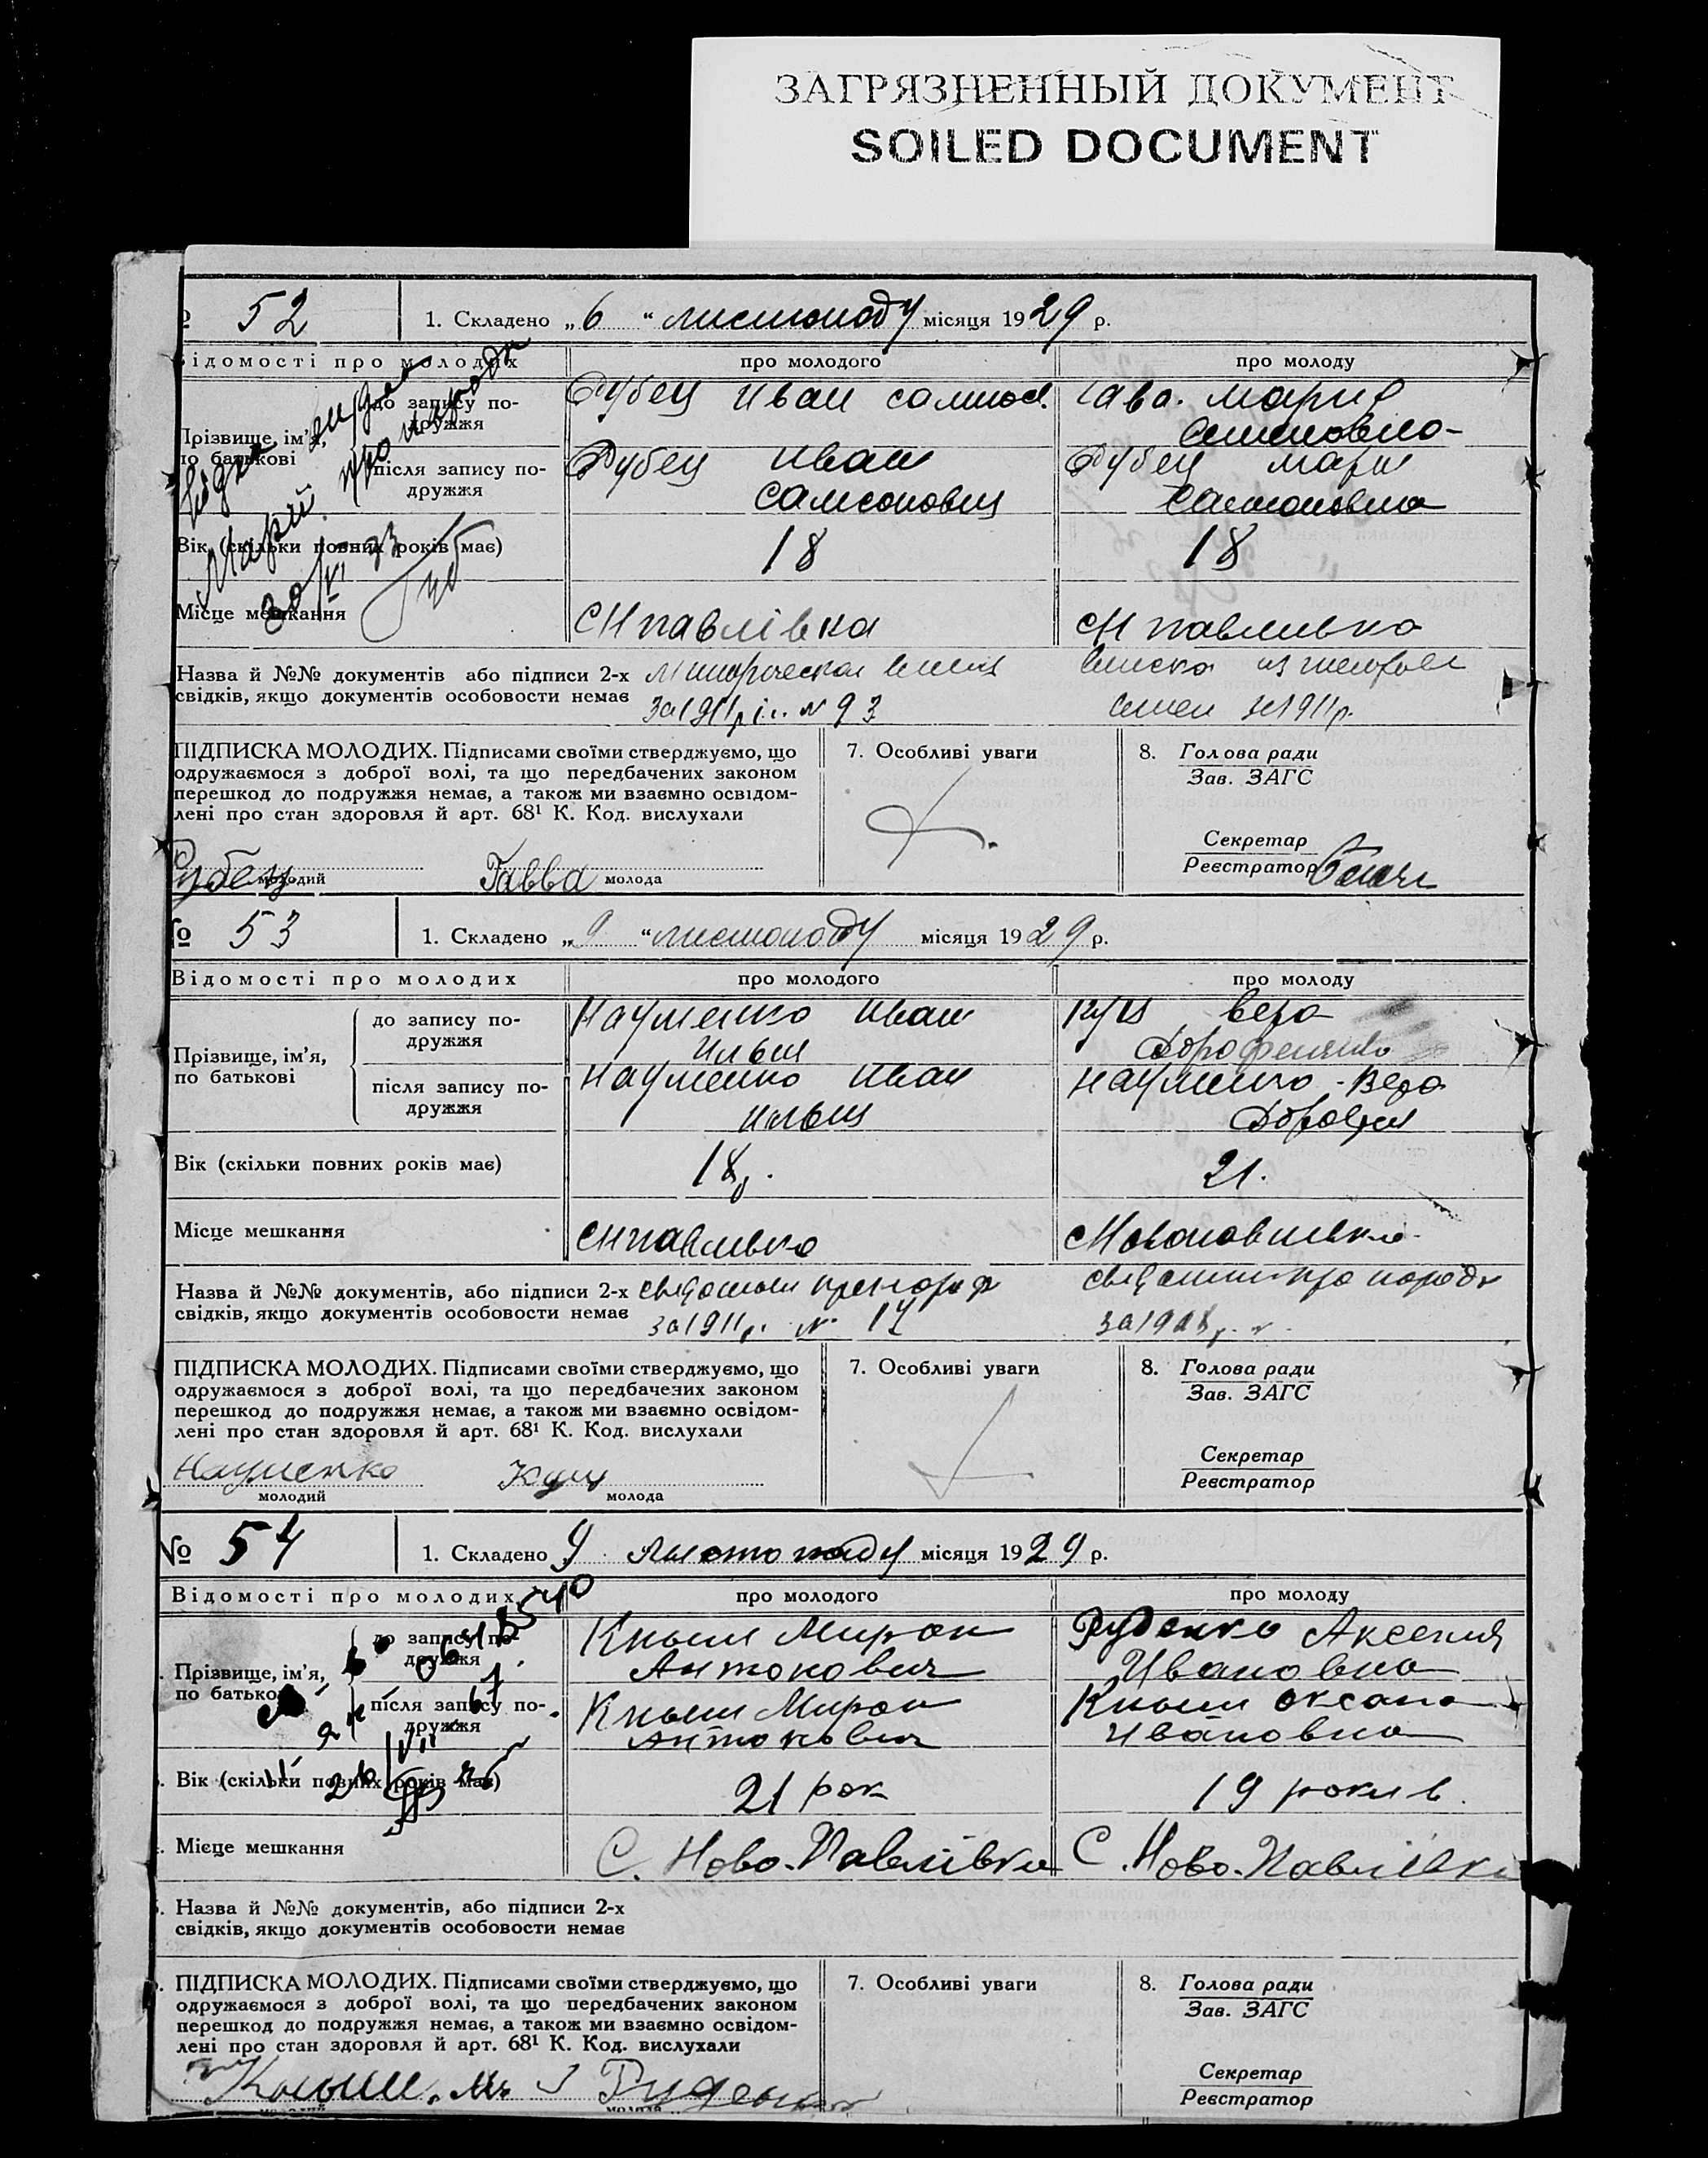 ЗАГРЯЗНЕННЫЙ ДОКУМЕНТ
SOILED DOCUMENT
52
1. Складено „6“ листопаду місяця 1929 р.
Відомості про молодих
про молодого
про молоду
Прізвище, ім'я, по батькові
до запису подружжя
Рубец Иван
Мария
після запису по-
дружжя
Рубец Иван
Самсонович
Рубец
Вік (скільки повних років має)
18
18
Місце мешкання
СНпавлівка
СНпавливка
Назва й №№ документів або підписи 2-х
свідків, якщо документів особовости немає
за 1911 р. № 93
1911р.
ПІДПИСКА МОЛОДИХ. Підписами своїми стверджуємо, що
одружаємося з доброї волі, та що передбачених законом
перешкод до подружжя немає, а також ми взаємно освідом-
лені про стан здоровля й арт. 68¹ К. Код. вислухали
Рубец молодий
Гавва молода
7. Особливі уваги
8. Голова ради
Зав. ЗАГС
Секретар
Реєстратор
№ 53
1. Складено „9“ листопаду місяця 1929 р.
Відомості про молодих
про молодого
про молоду
Прізвище, ім'я,
по батькові
до запису по-
дружжя
Науменко Иван
Ильич
Куц Вера
після запису по-
дружжя
Науменко Иван
Ильич
Науменко - Вера
Вік (скільки повних років має)
18
21.
Місце мешкання
СНпавливка
Назва й №№ документів, або підписи 2-х
свідків, якщо документів особовости немає
за 1911 р. № 14
ПІДПИСКА МОЛОДИХ. Підписами своїми стверджуємо, що
одружаємося з доброї волі, та що передбачених законом
перешкод до подружжя немає, а також ми взаємно освідом-
лені про стан здоровля й арт. 68¹ К. Код. вислухали
Науменко
молодий
Куц
молода
7. Особливі уваги
8. Голова ради
Зав. ЗАГС
Секретар
Реєстратор
№ 54
1. Складено 9 листопаду місяця 1929 р.
Відомості про молодих
про молодого
про молоду
Прізвище, ім'я,
по батькові
до запису по-
дружжя
Кныш Мирон
Антонович
Руденко Аксения
Ивановна
після запису по-
дружжя
Кныш Мирон
Антонович
Кныш Оксана
Ивановна
Вік (скільки повних років має)
21 рок
19 рокив.
Місце мешкання
С. Ново-Павлівка
С. Ново-Павлівка
Назва й №№ документів, або підписи 2-х
свідків, якщо документів особовости немає
ПІДПИСКА МОЛОДИХ. Підписами своїми стверджуємо, що
одружаємося з доброї волі, та що передбачених законом
перешкод до подружжя немає, а також ми взаємно освідом-
лені про стан здоровля й арт. 68¹ К. Код. вислухали
Кныш. М.
Руденко
7. Особливі уваги
8. Голова ради
Зав. ЗАГС
Секретар
Реєстратор